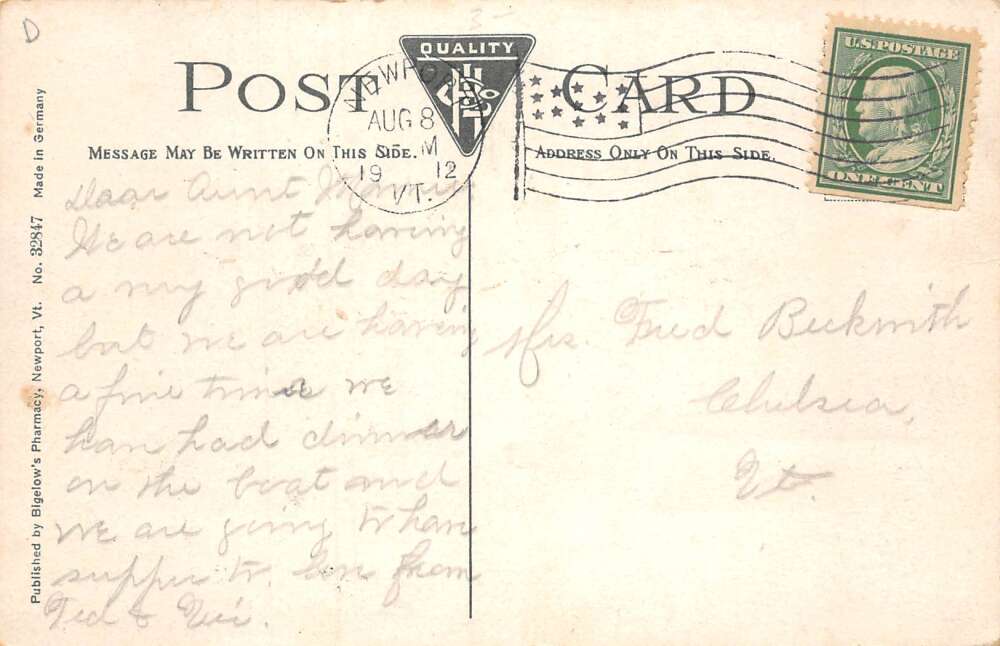 D
3-
QUALITY
POST CARD
NEWPORT
AUG 8
M
19 12
VT.
U.S. POSTAGE
ONE CENT
MESSAGE MAY BE WRITTEN ON THIS SIDE.
ADDRESS ONLY ON THIS SIDE.
Dear Aunt
We are not having
a very good day
but we are having
a fine time we
han had dinner
on the boat and
we are going to have
supper to from
Ted &
Mrs. Fred Beckwith
Chelsea,
Vt.
Published by Bigelow's Pharmacy, Newport, Vt. No. 32847 Made in Germany